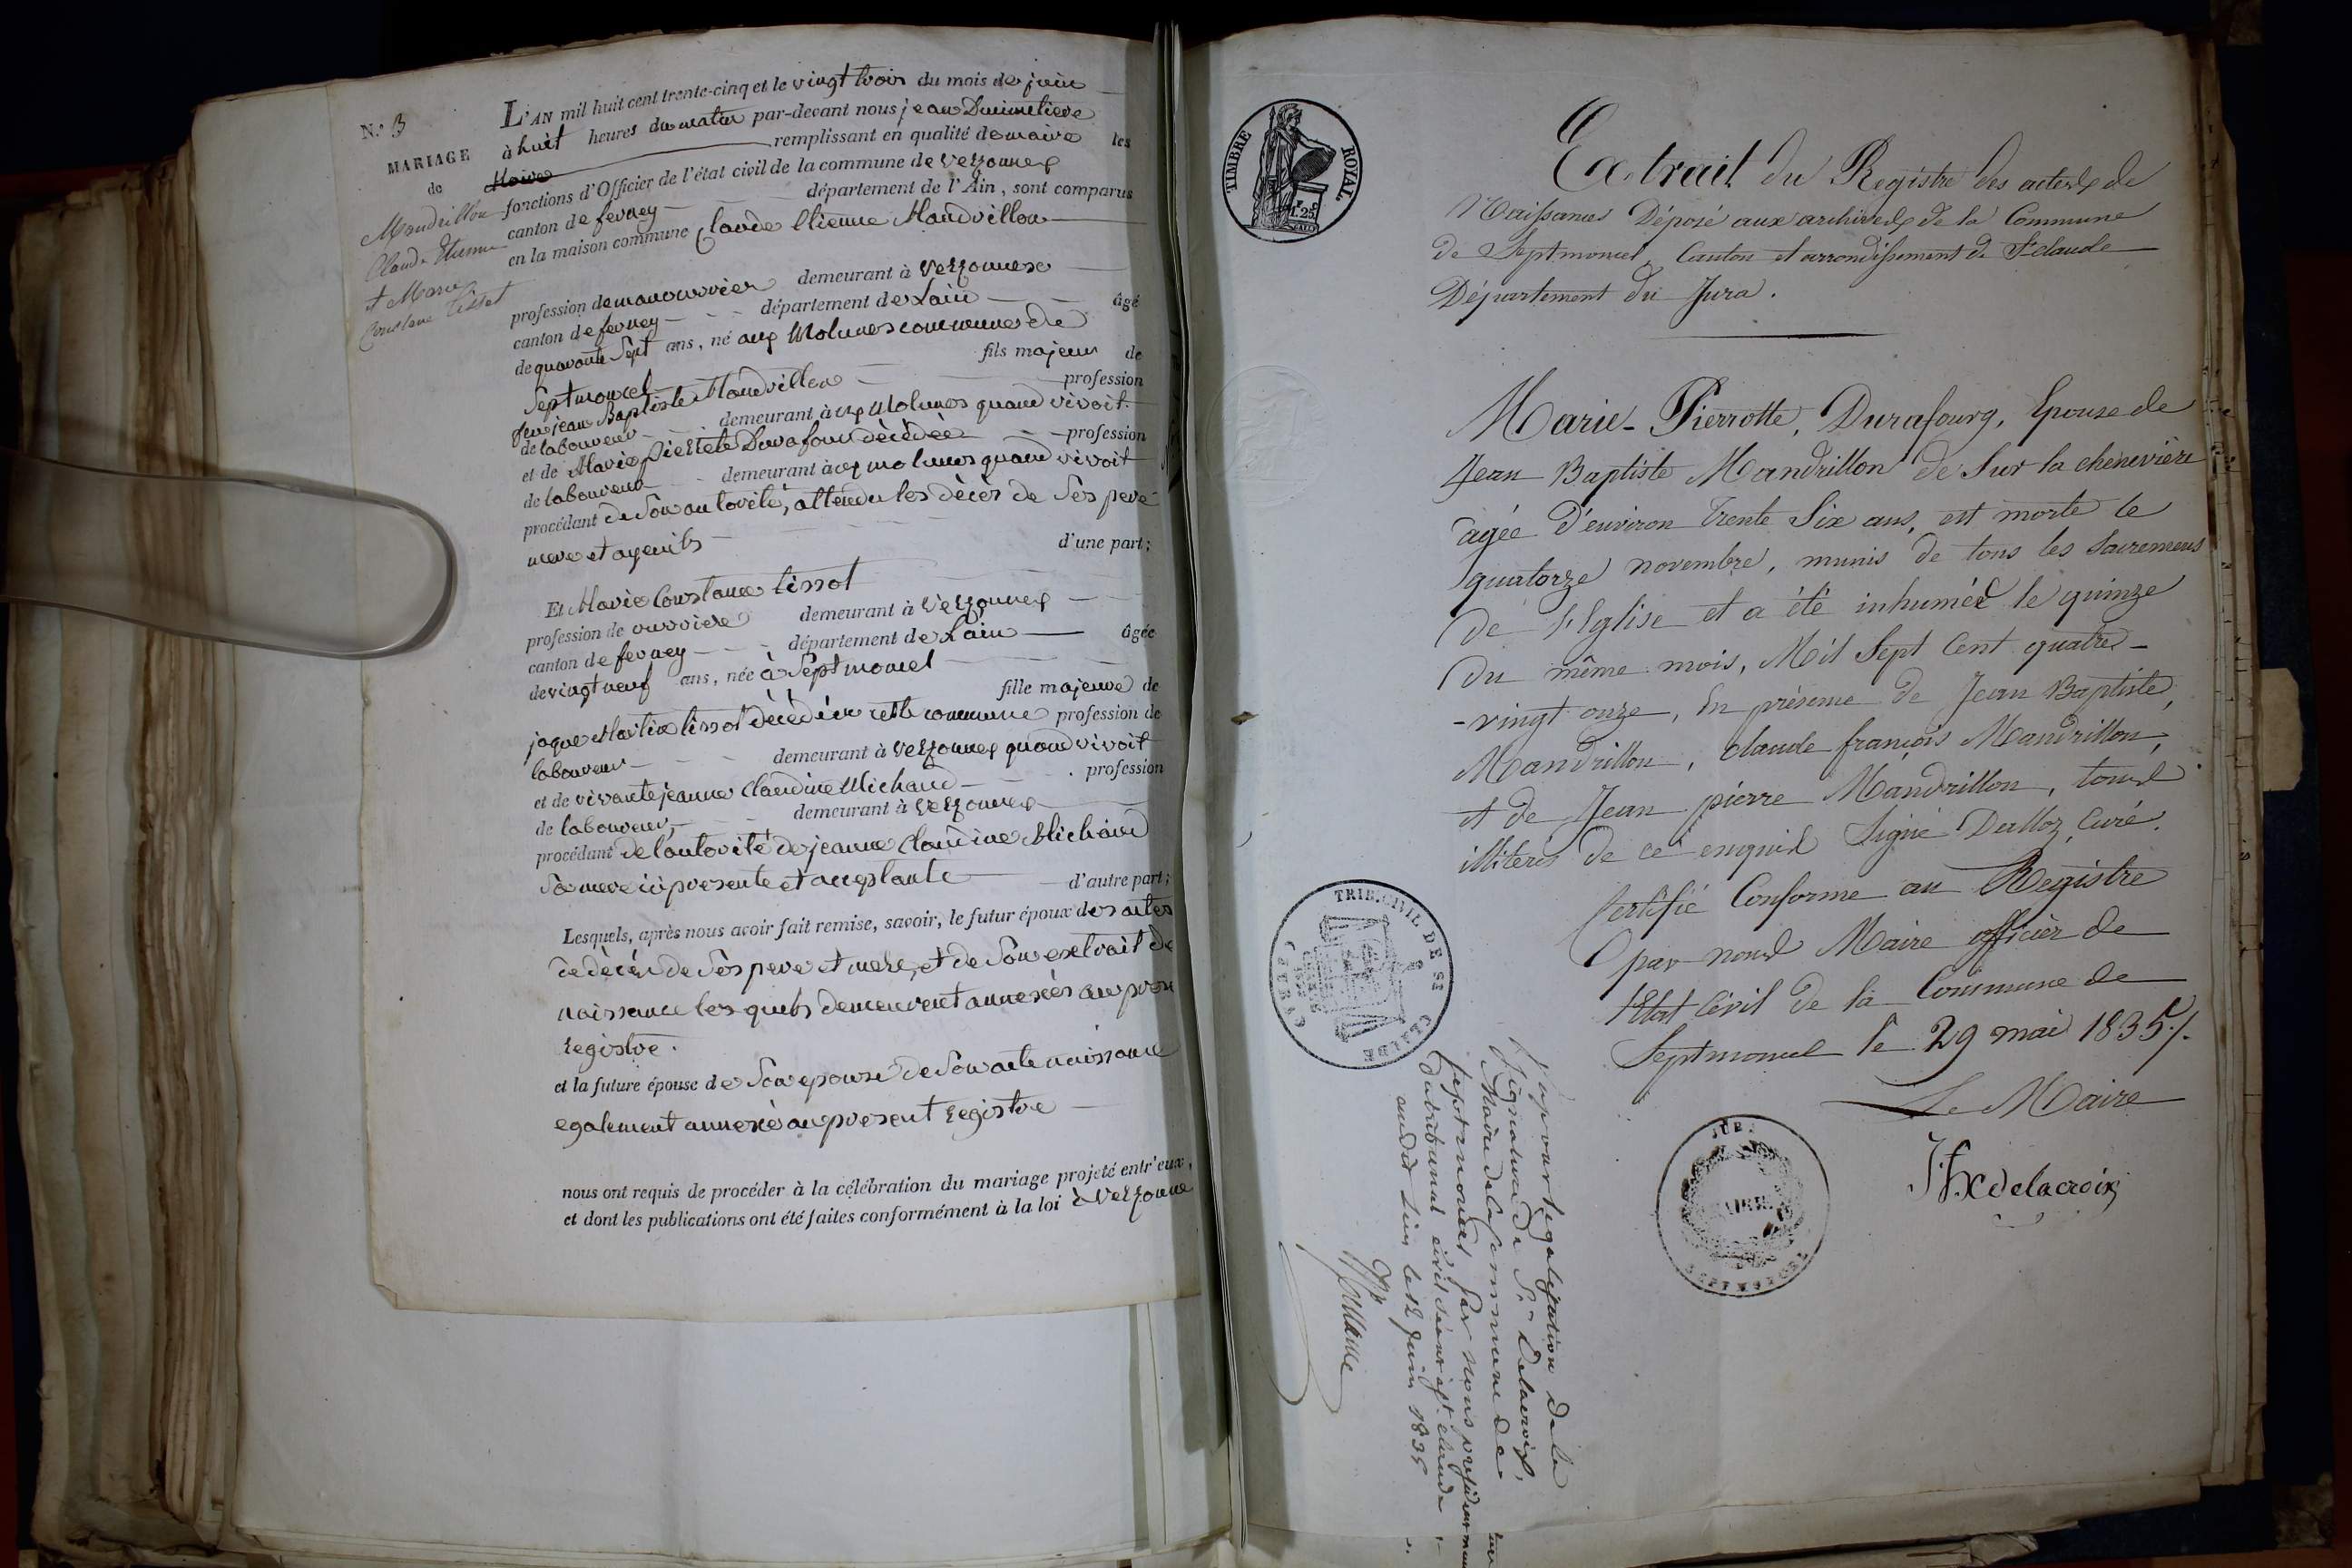 N.o 3
MARIAGE
de
Mandrillon
Claude Etienne
et Marie
Constance Tissot
L'AN mil huit cent trente-cinq et le vingt trois du mois de juin
à huit heures du matin par-devant nous jean Duimetiere
Maire remplissant en qualité de maire les
fonctions d'Officier de l'état civil de la commune de Verzonnex
canton de ferney département de l'Ain, sont comparus
en la maison commune Claude Etienne Mandrillon
profession de manouvrier demeurant à Verzonnex
canton de ferney département de Lain âgé
de quarante Sept ans, né aux Molunes commune de
Septmoncel fils majeur de
feu jean Baptiste Mandrillon profession
de laboureur demeurant à aux Molunes quand vivoit
et de Marie pierrete Durafour décédée profession
de laboureur demeurant à aux molunes quand vivoit
procédant de Son autorité, attendu les décès de Ses pere
mere et ayeuls d'une part;
Et Marie Constance tissot
profession de ouvriere demeurant à Verzonnex
canton de ferney département de Lain âgée
de vingt neuf ans, née à Septmoncel
fille majeure de
jaque Martin tissot décédé en cette commune profession de
laboureur demeurant à Verzonnex quand vivoit
et de vivante jeanne Claudine Michaud profession
de laboureur, demeurant à Verzonnex
procédant de lautorité de jeanne Claudine Michaud
Sa mere ici presente et acceptante d'autre part;
Lesquels, après nous avoir fait remise, savoir, le futur époux des actes
de décès de Ses pere et mere, et de Son extrait de
naissance les quels demeurent annexés au present
Registre.
et la future épouse de Son epouse de Son acte naissance
egalement annexé au present Registre
nous ont requis de procéder à la célébration du mariage projeté entr'eux,
et dont les publications ont été faites conformément à la loi à Verzonnex
TIMBRE ROYAL
1.F 25C
Extrait du Registre des actes de
Naissances Déposé aux archives de la Commune
de Septmoncel, Canton et arrondissement de St Claude
Département du Jura.
Marie-Pierrotte, Durafourg, Epouse de
Jean Baptiste Mandrillon de Sur la chenevière
agée d'environ Trente Six ans, est morte le
quatorze novembre, munis de tous les Sacremens
de l'Eglise et a été inhumée le quinze
du même mois, Mil Sept Cent quatre-
-vingt onze, En présence de Jean Baptiste,
Mandrillon, claude françois Mandrillon,
et de Jean pierre Mandrillon, tous
illiterés de ce enquis Signé Dalloz, Curé.
Certifié Conforme au Registre
par nous Maire officier de
l'Etat Civil de la Commune de
Septmoncel le 29 mai 1835./.
Le Maire
Delacroix
TRIB. CIVIL DE ST CLAUDE
JURA
MAIRIE
SEPTMONCEL
Vu pour legalisation de la
Signature de Sr Delacroix,
Maire de la Commune de
Septmoncel, par nous président
du tribunal civil séant à St Claude,
audit lieu le 12 juin 1835